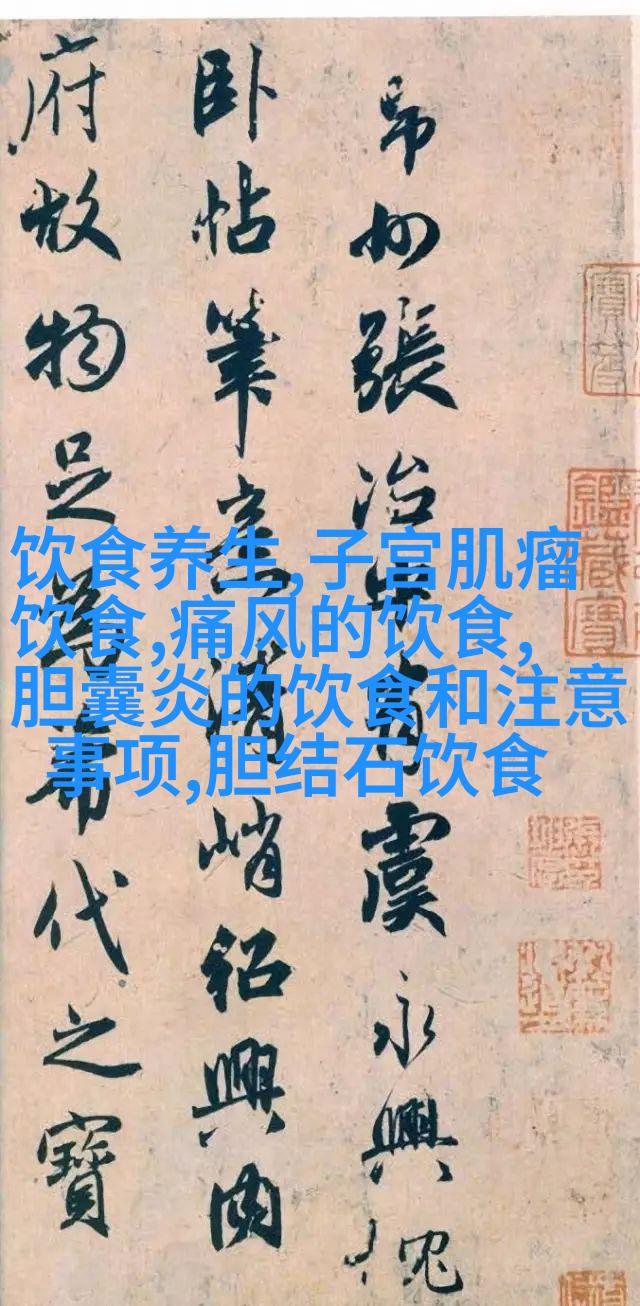 州張治中有虞永興枕
卧帖筆意清峭紹興内
府故物足為希代之寶
饮食养生,子宫肌瘤
饮食,痛风的饮食,
胆囊炎的饮食和注意
事项,胆结石饮食